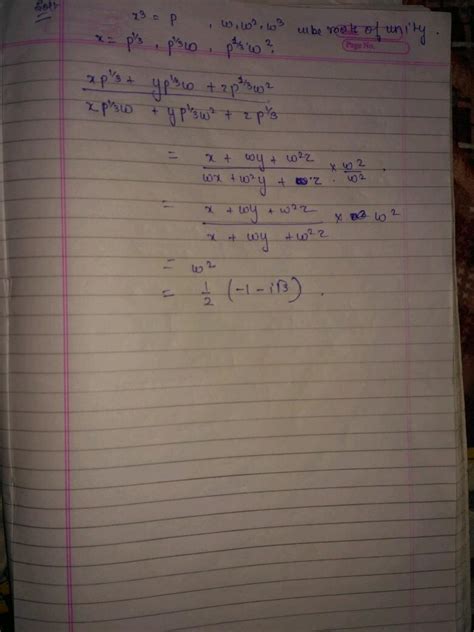 Soln
x³ = p , ω, ω², ω³ cube roots of unity.
Page No.
x = p^1/3 , p^1/3 ω , p^1/3 ω².
(xp^1/3 + yp^1/3 ω + zp^1/3 ω²) / (xp^1/3 ω + yp^1/3 ω² + zp^1/3)
= (x + ωy + ω²z) / (ωx + ω²y + z) × ω²/ω² .
= (x + ωy + ω²z) / (x + ωy + ω²z) × ω²
= ω²
= 1/2 (-1 - i√3) .